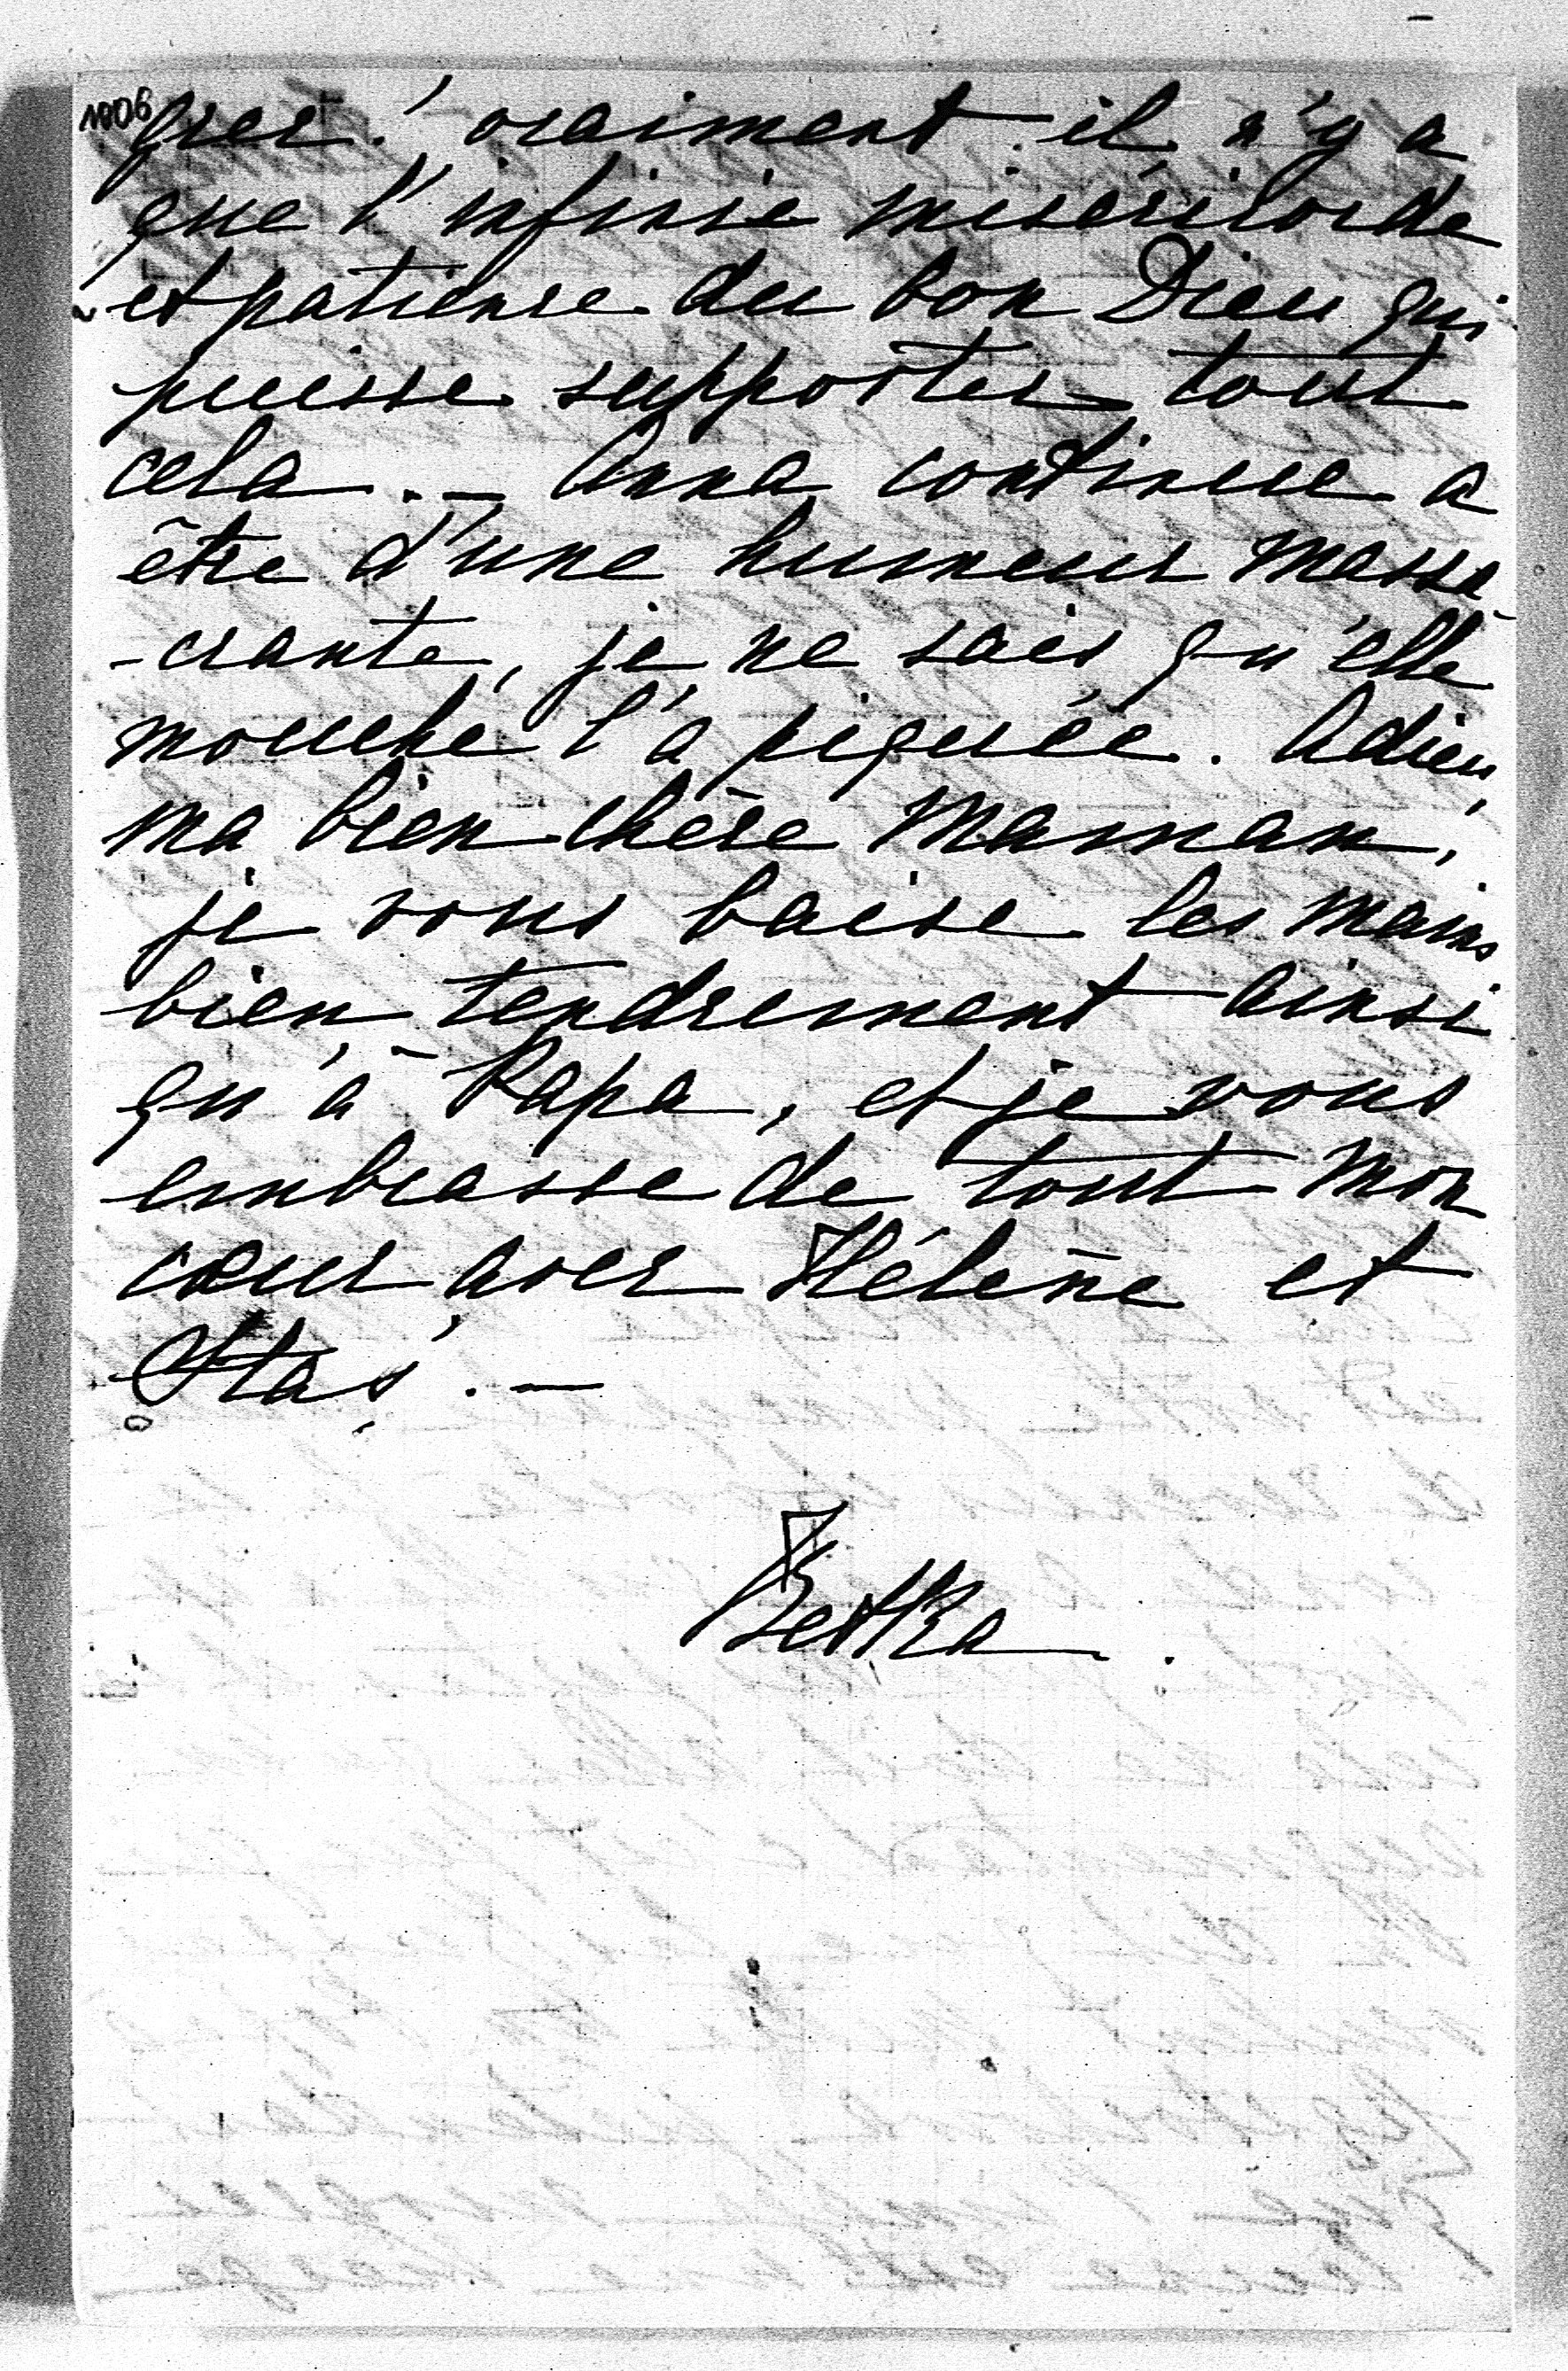 1006
quer! vraiment il n'y a
que l'infinie miséricorde
et patience du bon Dieu qui
puisse supporter tout
cela. — Anna continue a
être d'une humeur massa-
-crante, je ne sais qu'elle
mouche l'a piquée. Adieu,
ma bien chère Maman,
je vous baise les mains
bien tendrement ainsi
qu'à Papa, et je vous
embrasse de tout mon
cœur avec Hélène et
Staś. —
Betka.